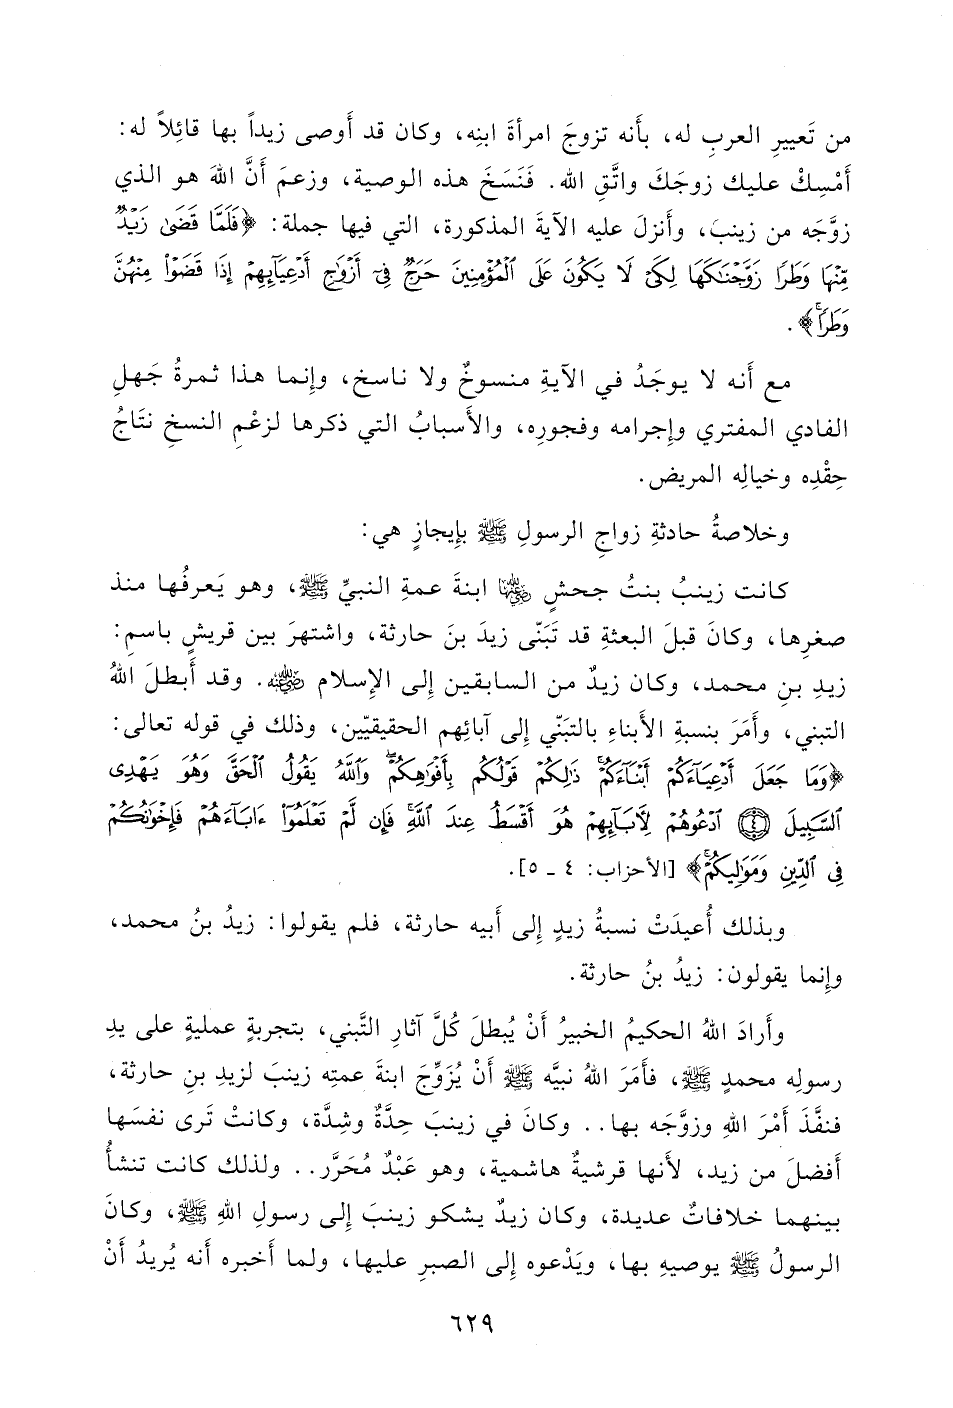 من تَعييرِ العربِ له، بأَنه تزوجَ امرأةَ ابنِه، وكان قد أَوصى زيداً بها قائِلاً له:
أَمْسِكْ عليك زوجَكَ واتَّقِ الله. فَنَسَخَ هذه الوصية، وزعمَ أَنَّ اللهَ هو الذي
زوَّجَه من زينبَ، وأَنزلَ عليه الآيةَ المذكورة، التي فيها جملة: ﴿فَلَمَّا قَضَىٰ زَيْدٌ
مِّنْهَا وَطَرًا زَوَّجْنَٰكَهَا لِكَىْ لَا يَكُونَ عَلَى ٱلْمُؤْمِنِينَ حَرَجٌ فِىٓ أَزْوَٰجِ أَدْعِيَآئِهِمْ إِذَا قَضَوْا۟ مِنْهُنَّ
وَطَرًا﴾.
مع أَنه لا يوجَدُ في الآيةِ منسوخٌ ولا ناسخ، وإِنما هذا ثمرةُ جَهلِ
الفادي المفتري وإِجرامه وفجورِه، والأَسبابُ التي ذكرها لزعْمِ النسخِ نتَاجُ
حِقْدِه وخيالِه المريض.
وخلاصةُ حادثةِ زواجِ الرسولِ ﷺ بإِيجازٍ هي:
كانت زينبُ بنتُ جحشٍ رضي الله عنها ابنةَ عمةِ النبيِّ ﷺ، وهو يَعرفُها منذ
صغرِها، وكانَ قبلَ البعثةِ قد تَبَنّى زيدَ بنَ حارثة، واشتهرَ بين قريشٍ باسمِ:
زيدِ بنِ محمد، وكان زيدٌ من السابقين إِلى الإِسلام رضي الله عنه. وقد أَبطلَ اللهُ
التبني، وأَمَرَ بنسبةِ الأَبناءِ بالتبَنّي إِلى آبائِهم الحقيقيّين، وذلك في قوله تعالى:
﴿وَمَا جَعَلَ أَدْعِيَآءَكُمْ أَبْنَآءَكُمْ ذَٰلِكُمْ قَوْلُكُم بِأَفْوَٰهِكُمْ وَٱللَّهُ يَقُولُ ٱلْحَقَّ وَهُوَ يَهْدِى
ٱلسَّبِيلَ ٤ ٱدْعُوهُمْ لِءَابَآئِهِمْ هُوَ أَقْسَطُ عِندَ ٱللَّهِ فَإِن لَّمْ تَعْلَمُوٓا۟ ءَابَآءَهُمْ فَإِخْوَٰنُكُمْ
فِى ٱلدِّينِ وَمَوَٰلِيكُمْ﴾ [الأحزاب: ٤ ـ ٥].
وبذلك أُعيدَتْ نسبةُ زيدٍ إِلى أَبيه حارثة، فلم يقولوا: زيدُ بنُ محمد،
وإِنما يقولون: زيدُ بنُ حارثة.
وأَرادَ اللهُ الحكيمُ الخبيرُ أَنْ يُبطلَ كُلَّ آثارِ التَّبني، بتجربةٍ عمليةٍ على يدِ
رسولِه محمدٍ ﷺ، فأَمَرَ اللهُ نبيَّه ﷺ أَنْ يُزَوِّجَ ابنةَ عمتِه زينبَ لزيدِ بنِ حارثة،
فنفَّذَ أَمْرَ اللهِ وزوَّجَه بها.. وكانَ في زينبَ حِدَّةٌ وشِدَّة، وكانتْ تَرى نفسَها
أَفضلَ من زيد، لأَنها قرشيةٌ هاشمية، وهو عَبْدٌ مُحَرَّر.. ولذلك كانت تنشأُ
بينهما خلافاتٌ عديدة، وكان زيدٌ يشكو زينبَ إِلى رسولِ اللهِ ﷺ، وكانَ
الرسولُ ﷺ يوصيهِ بها، ويَدْعوه إِلى الصبرِ عليها، ولما أَخبره أَنه يُريدُ أَنْ
٦٢٩